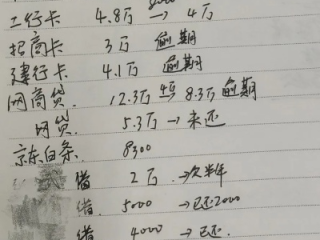 工行卡 4.8万 → 4万
招商卡 3万 逾期
建行卡 4.1万 逾期
网商贷 12.3万 8.3万 逾期
网贷 5.3万 → 未还
京东白条 8300
借 2万 → 欠半年
借 5000 → 已还2000
借 4000 → 已还.